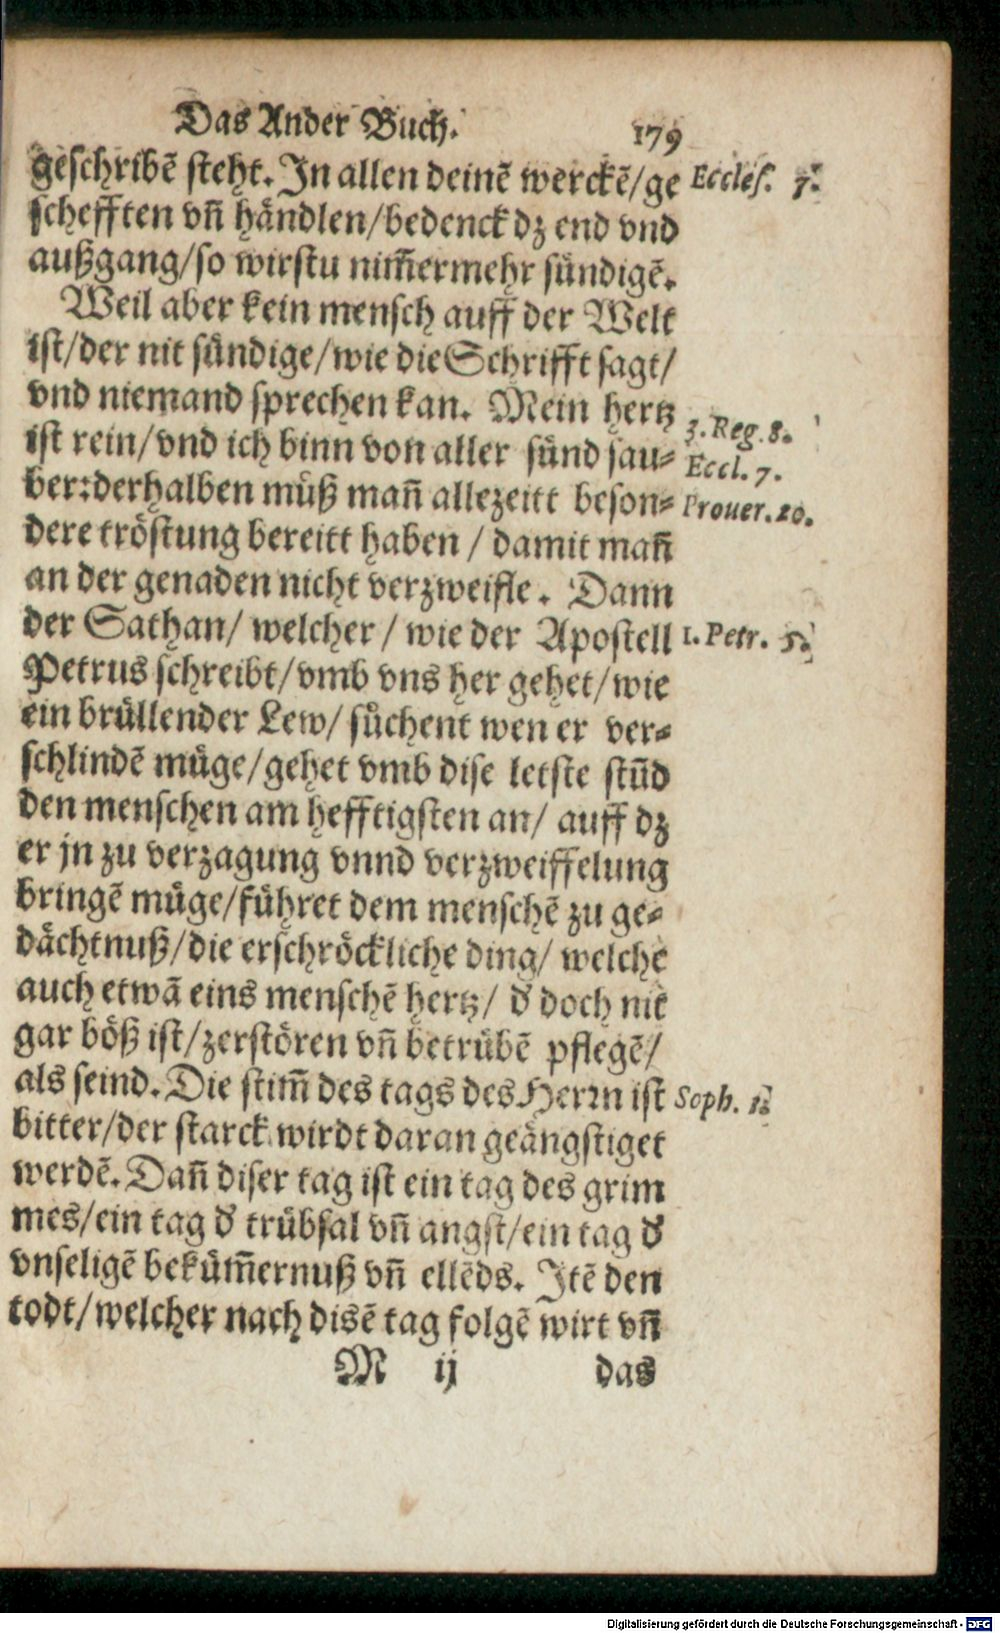 Das Ander Buch. 179
geschribẽ steht. In allen deinẽ werckẽ/ge Eccles. 7.
schefften vñ händlen/bedenck dz end vnd
außgang/so wirstu nim̃ermehr sündigẽ.
Weil aber kein mensch auff der Welt
ist/der nit sündige/wie die Schrifft sagt/
vnd niemand sprechen kan. Mein hertz 3. Reg. 8.
ist rein/vnd ich binn von aller sünd sau⸗ Eccl. 7.
ber:derhalben müß mañ allezeitt beson⸗ Prouer. 20.
dere tröstung bereitt haben / damit mañ
an der genaden nicht verzweifle. Dann
der Sathan/ welcher / wie der Apostell 1. Petr. 5.
Petrus schreibt/vmb vns her gehet/wie
ein brüllender Lew/ sůchent wen er ver⸗
schlindẽ müge/gehet vmb dise letste stũd
den menschen am hefftigsten an/ auff dz
er jn zu verzagung vnnd verzweiffelung
bringẽ müge/führet dem menschẽ zu ge⸗
dächtnuß/die erschröckliche ding/ welche
auch etwã eins menschẽ hertz/ d' doch nit
gar böß ist/zerstören vñ betrübẽ pflegẽ/
als seind. Die stim̃ des tags des Herrn ist Soph. 1.
bitter/der starck wirdt daran geängstiget
werdẽ. Dañ diser tag ist ein tag des grim
mes/ein tag d' trübsal vñ angst/ein tag d'
vnseligẽ beküm̃ernuß vñ ellẽds. Itẽ den
todt/welcher nach disẽ tag folgẽ wirt vñ
M ij das
Digitalisierung gefördert durch die Deutsche Forschungsgemeinschaft - DFG